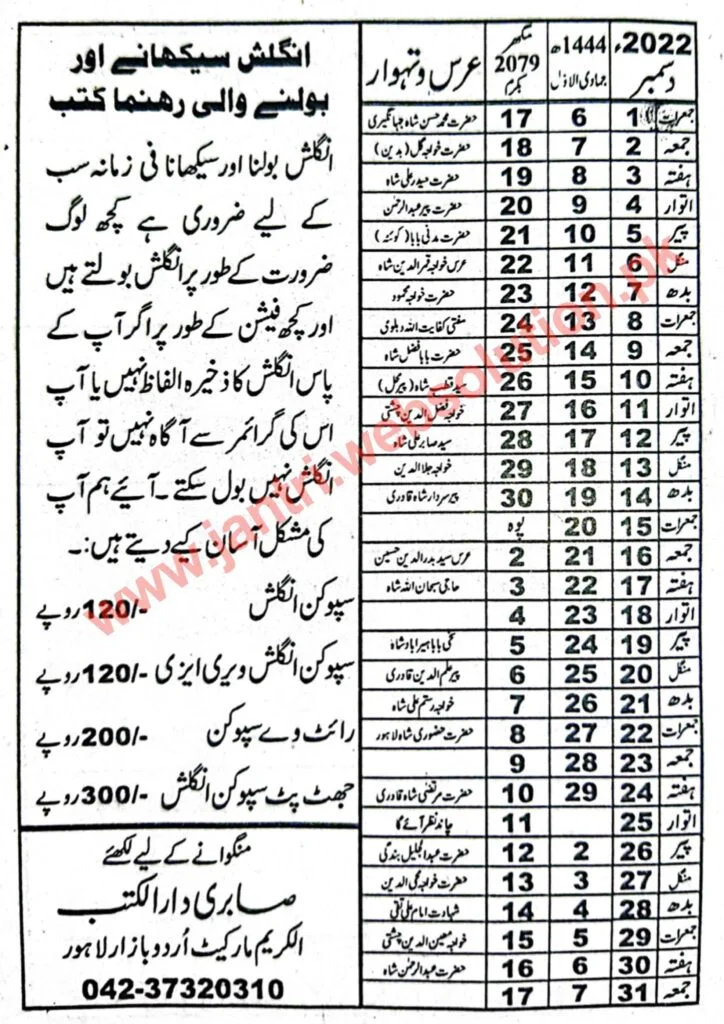 انگلش سیکھانے اور
بولنے والی رہنما کتب
انگلش بولنا اور سیکھانا فی زمانہ سب
کے لیے ضروری ہے کچھ لوگ
ضرورت کے طور پر انگلش بولتے ہیں
اور کچھ فیشن کے طور پر اگر آپ کے
پاس انگلش کا ذخیرہ الفاظ نہیں یا آپ
اس کی گرائمر سے آگاہ نہیں تو آپ
انگلش نہیں بول سکتے۔ آئیے ہم آپ
کی مشکل آسان کیے دیتے ہیں:۔
سپوکن انگلش -/120 روپے
سپوکن انگلش ویری ایزی -/120 روپے
رائٹ وے سپوکن -/200 روپے
جھٹ پٹ سپوکن انگلش -/300 روپے
منگوانے کے لیے لکھئے
صابری دارالکتب
الکریم مارکیٹ اُردو بازار لاہور
042-37320310
2022ء دسمبر 1444ھ جمادی الاوّل مگھر 2079 بکرم عرس و تہوار
جمعرات 1 6 17 حضرت محمد حسن شاہ جہانگیری
جمعہ 2 7 18 حضرت خواجہ گل (بدین)
ہفتہ 3 8 19 حضرت حیدر علی شاہ
اتوار 4 9 20 حضرت پیر عبدالرحمٰن
پیر 5 10 21 حضرت مدنی بابا (کوئٹہ)
منگل 6 11 22 عرس خواجہ قمرالدین شاہ
بدھ 7 12 23 حضرت خواجہ محمود
جمعرات 8 13 24 مفتی کفایت اللہ دہلوی
جمعہ 9 14 25 حضرت بابا فضل شاہ
ہفتہ 10 15 26 سید قطب شاہ (پیر محل)
اتوار 11 16 27 خواجہ فضل الدین چشتی
پیر 12 17 28 سید صابر علی شاہ
منگل 13 18 29 خواجہ جلالدین
بدھ 14 19 30 پیر سردار شاہ قادری
جمعرات 15 20 پوہ
جمعہ 16 21 2 عرس سید بدرالدین حسین
ہفتہ 17 22 3 حاجی سبحان اللہ شاہ
اتوار 18 23 4
پیر 19 24 5 سخی بابا ہیرا بادشاہ
منگل 20 25 6 پیر علم الدین قادری
بدھ 21 26 7 خواجہ رستم علی شاہ
جمعرات 22 27 8 حضرت حضوری شاہ لاہور
جمعہ 23 28 9
ہفتہ 24 29 10 حضرت مرتضیٰ شاہ قادری
اتوار 25 11 چاند نظر آئے گا
پیر 26 2 12 حضرت عبدالجلیل بندگی
منگل 27 3 13 حضرت خواجہ محی الدین
بدھ 28 4 14 شہادت امام علی نقی
جمعرات 29 5 15 خواجہ معین الدین چشتی
ہفتہ 30 6 16 حضرت عبدالرحمٰن شاہ
جمعہ 31 7 17
www.jantri.websolution.pk